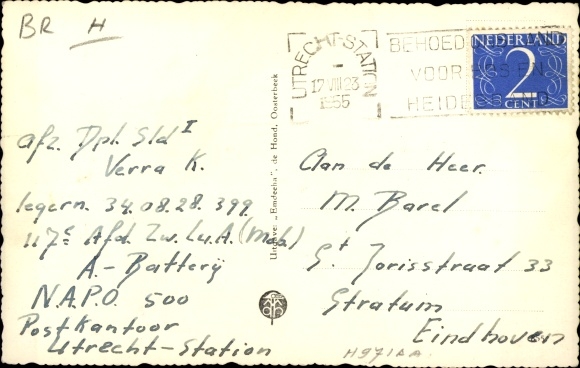 BR H
UTRECHT-STATION
17 VIII 23
1955
BEHOED
VOOR
HEIDE
NEDERLAND
2
CENT
afz. Dpl. Sld I
Verra K.
legern. 34.08.28.399
117e Afd. Zw. Lu.A. (Mob.)
A.-Batterij
N.A.P.O. 500
Postkantoor
Utrecht-Station
Uitgave: „Emdeeha", de Hond, Oosterbeek
Aan de Heer.
M. Barel
St Jorisstraat 33
Stratum
Eindhoven